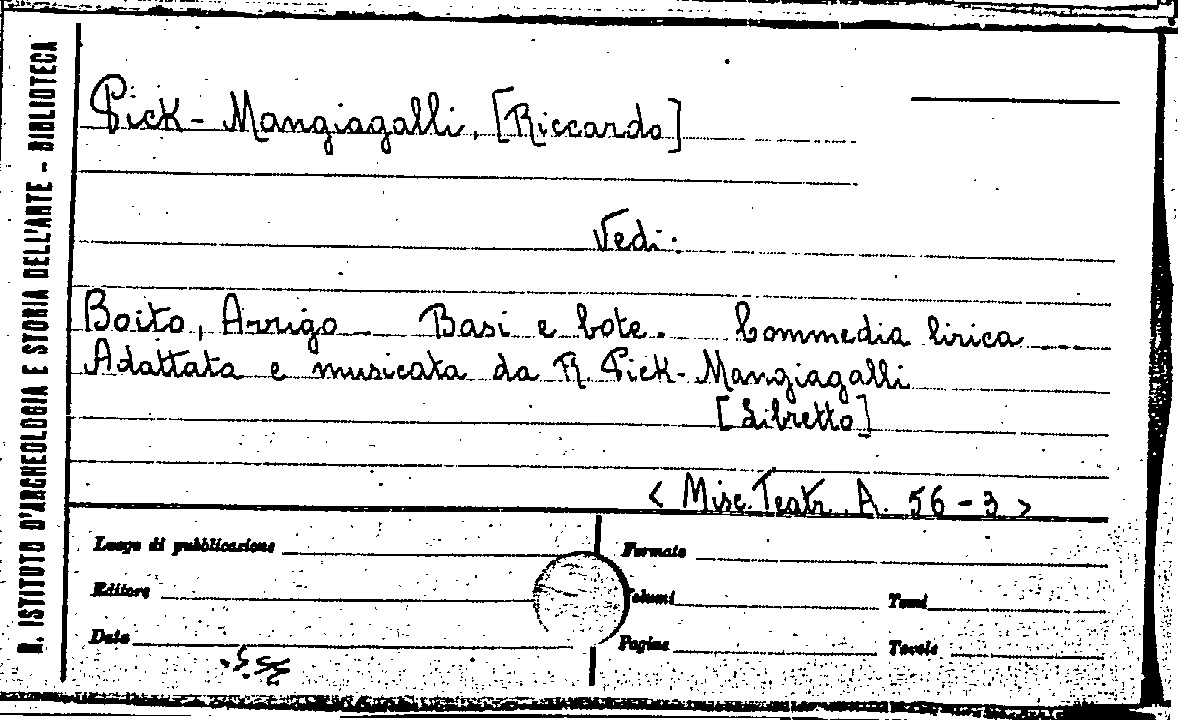 R. ISTITUTO D'ARCHEOLOGIA E STORIA DELL'ARTE - BIBLIOTECA
Pick-Mangiagalli, [Riccardo]
Vedi:
Boito, Arrigo - Basi e bote. Commedia lirica
Adattata e musicata da R. Pick-Mangiagalli
[Libretto]
< Misc. Teatr. A. 56-3 >
Luogo di pubblicazione
Formato
Editore
Volumi
Tomi
Data
Pagine
Tavole